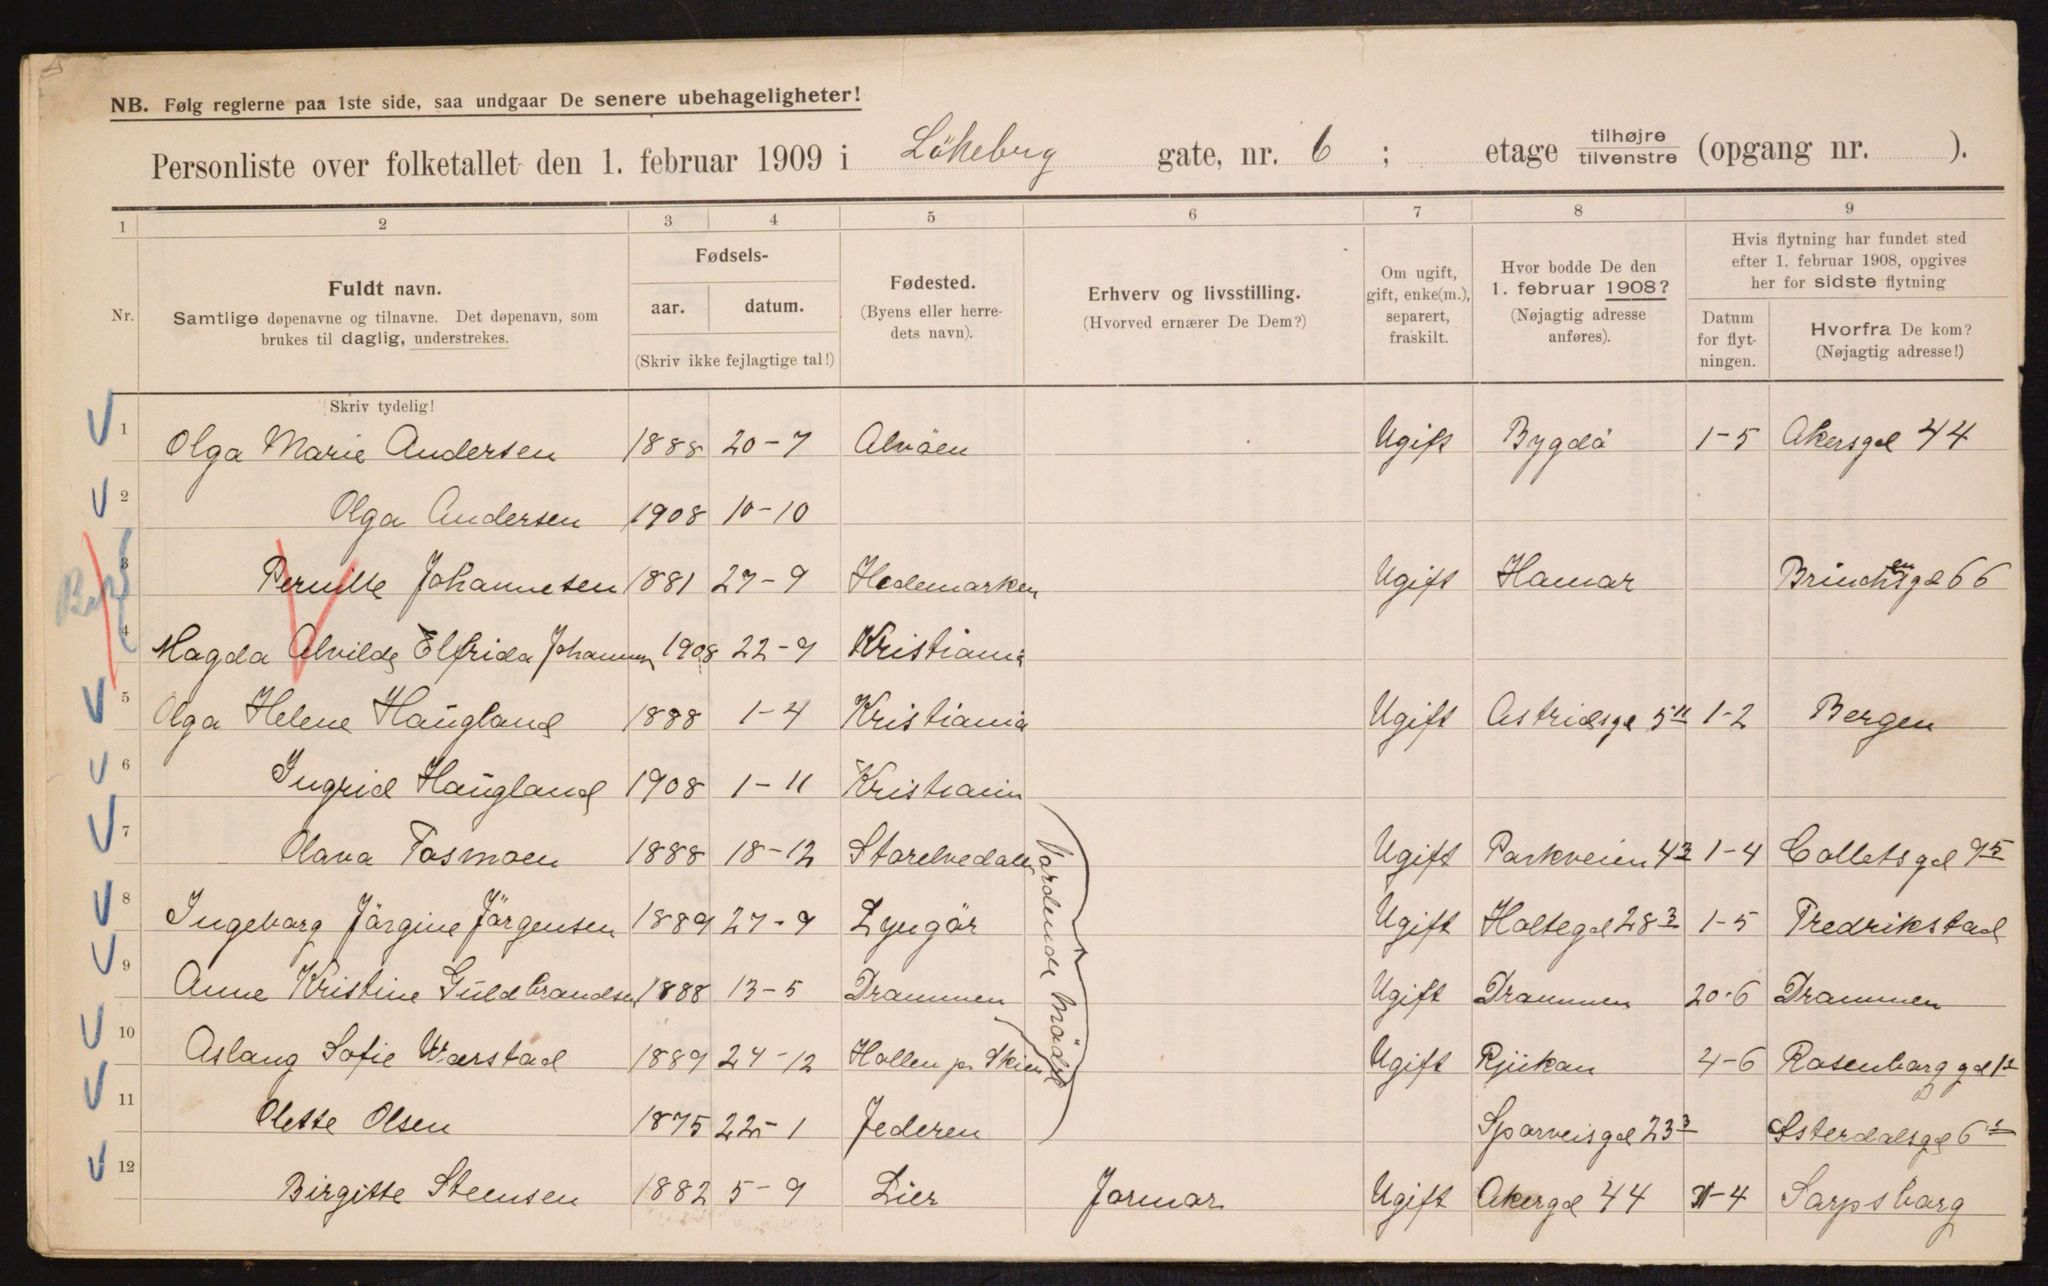 NB. Følg reglerne paa 1ste side, saa undgaar De senere ubehageligheter!
Personliste over folketallet den 1. februar 1909 i Lökeberg gate, nr. 6 ; etage tilhøjre tilvenstre (opgang nr. ).
1 2 3 4 5 6 7 8 9
Nr.
Fuldt navn.
Samtlige døpenavne og tilnavne. Det døpenavn, som
brukes til daglig, understrekes.
Fødsels-
aar. datum.
(Skriv ikke fejlagtige tal!)
Fødested.
(Byens eller herre-
dets navn).
Erhverv og livsstilling.
(Hvorved ernærer De Dem?)
Om ugift,
gift, enke(m.),
separert,
fraskilt.
Hvor bodde De den
1. februar 1908?
(Nøjagtig adresse
anføres).
Hvis flytning har fundet sted
efter 1. februar 1908, opgives
her for sidste flytning
Datum
for flyt-
ningen.
Hvorfra De kom?
(Nøjagtig adresse!)
Skriv tydelig!
1 Olga Marie Andersen 1888 20-7 Alvöen Ugift Bygdö 1-5 Akersgd 44
2 Olga Andersen 1908 10-10
3 Pernille Johannesen 1881 27-9 Hedemarken Ugift Hamar Brinchengd 66
4 Magda Alvilde Elfrida Johannsen 1908 22-9 Kristiania
5 Olga Helene Haugland 1888 1-4 Kristiania Ugift Astridsgd 5 II 1-2 Bergen
6 Ingrid Haugland 1908 1-11 Kristiania
7 Olava Tosmoen 1888 18-12 Storelvedalen Ugift Parkveien 43 1-4 Colletsgd 75
8 Ingeborg Jörgine Jörgensen 1889 27-9 Lyngör Ugift Holtegd 28 3 1-5 Fredrikstad
9 Anne Kristine Guldbrandsen 1888 13-5 Drammen Ugift Drammen 20-6 Drammen
10 Aslaug Sofie Værstad 1889 24-12 Hollen pr Skien Ugift Rjukan 4-6 Rosenborg gd 12
11 Olette Olsen 1875 22-1 Jederen Sporveisgd 23 3 Østerdalsgd 6
Vordende Mödre
12 Birgitte Steensen 1882 5-9 Lier Jormor Ugift Akergd 44 1-4 Sarpsborg